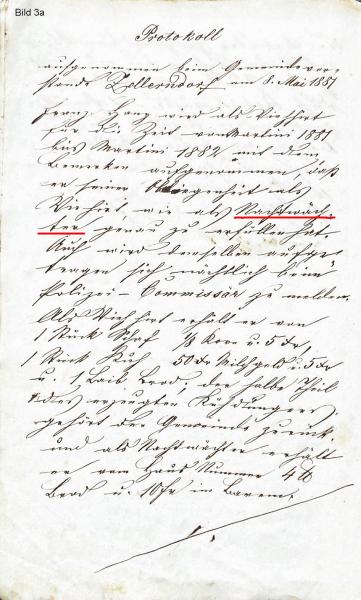 Bild 3a
Protokoll
aufgenommen beim Gemeindevor=
stande Zellerndorf am 8. Mai 1881
Franz Honz wird als Viehhirt
für die Zeit von Martini 1881
bis Martini 1882 mit dem
Bemerken aufgenommen, daß
er seiner Obliegenheit als
Viehhirt, wie als Nachtwäch=
ter genau zu erfüllen hat.
Auch wird demselben aufge=
tragen sich nächtlich beim
Polizei-Commissär zu melden.
Als Viehhirt erhält er von
1 Stück Schaf 1/8 Korn u. 5 kr,
1 Stück Kuh 50 kr Milchgeld u. 5 kr
u. 1 Laib Brod, der halbe Theil
des erzeugten Kühdüngers
gehört der Gemeinde zurück,
und als Nachtwächter erhält
er von Haus Nummer 4 ℔
Brod u. 10 kr in Barem.